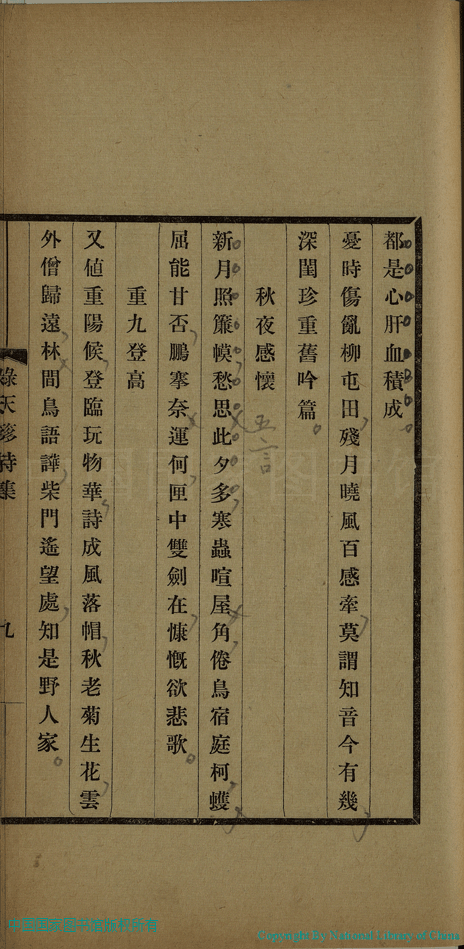 都是心肝血積成
憂時傷亂柳屯田殘月曉風百感牽莫謂知音今有幾
深閨珍重舊吟篇
秋夜感懷
五言
新月照簾幙愁思此夕多寒蟲喧屋角倦鳥宿庭柯蠖
屈能甘否鵬搴奈運何匣中雙劍在慷慨欲悲歌
重九登高
又値重陽候登臨玩物華詩成風落帽秋老菊生花雲
外僧歸遠林間鳥語譁柴門遙望處知是野人家
天 詩集
九
Copyright By National Library of China